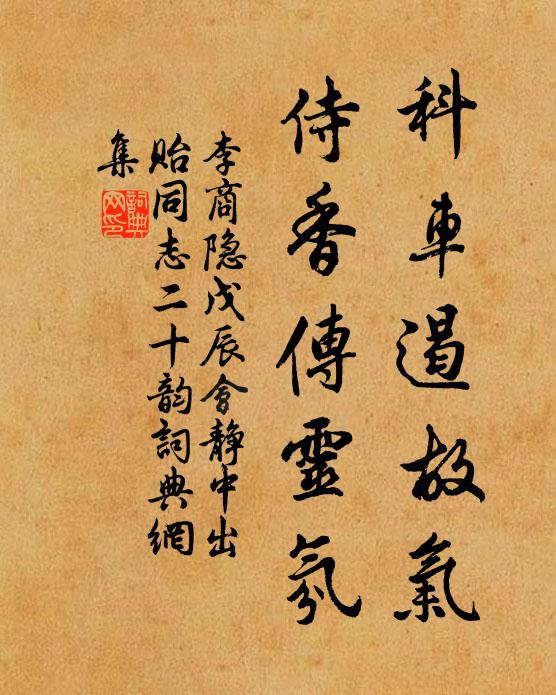 科車遏故氣
侍香傳靈氛
李商隐戊辰會靜中出
貽同志二十韵詞典網
集
詞典
网印